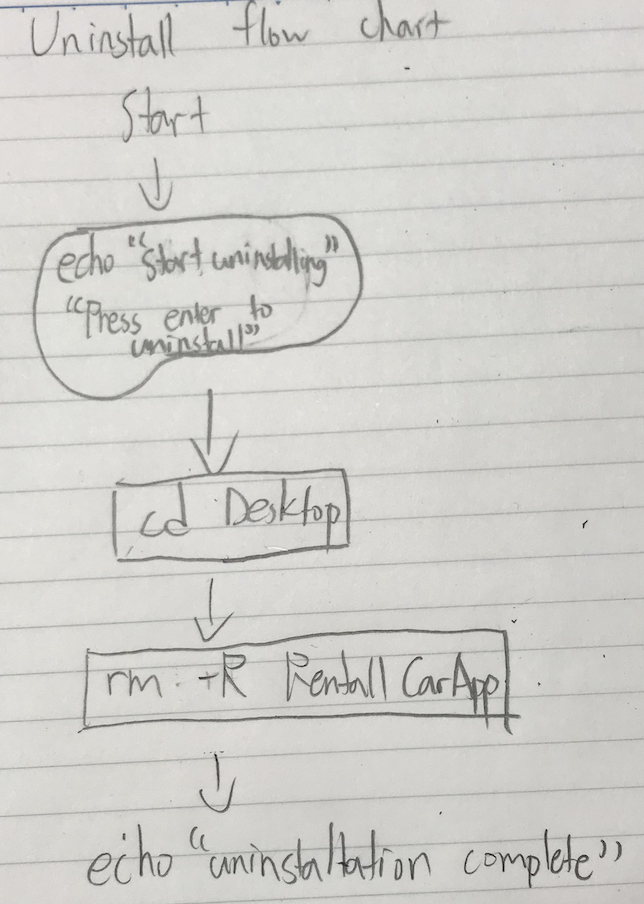 Uninstall flow chart
Start
echo "Start uninstalling"
"Press enter to
uninstall"
cd Desktop
rm -R Rentall CarApp
echo "uninstallation complete"